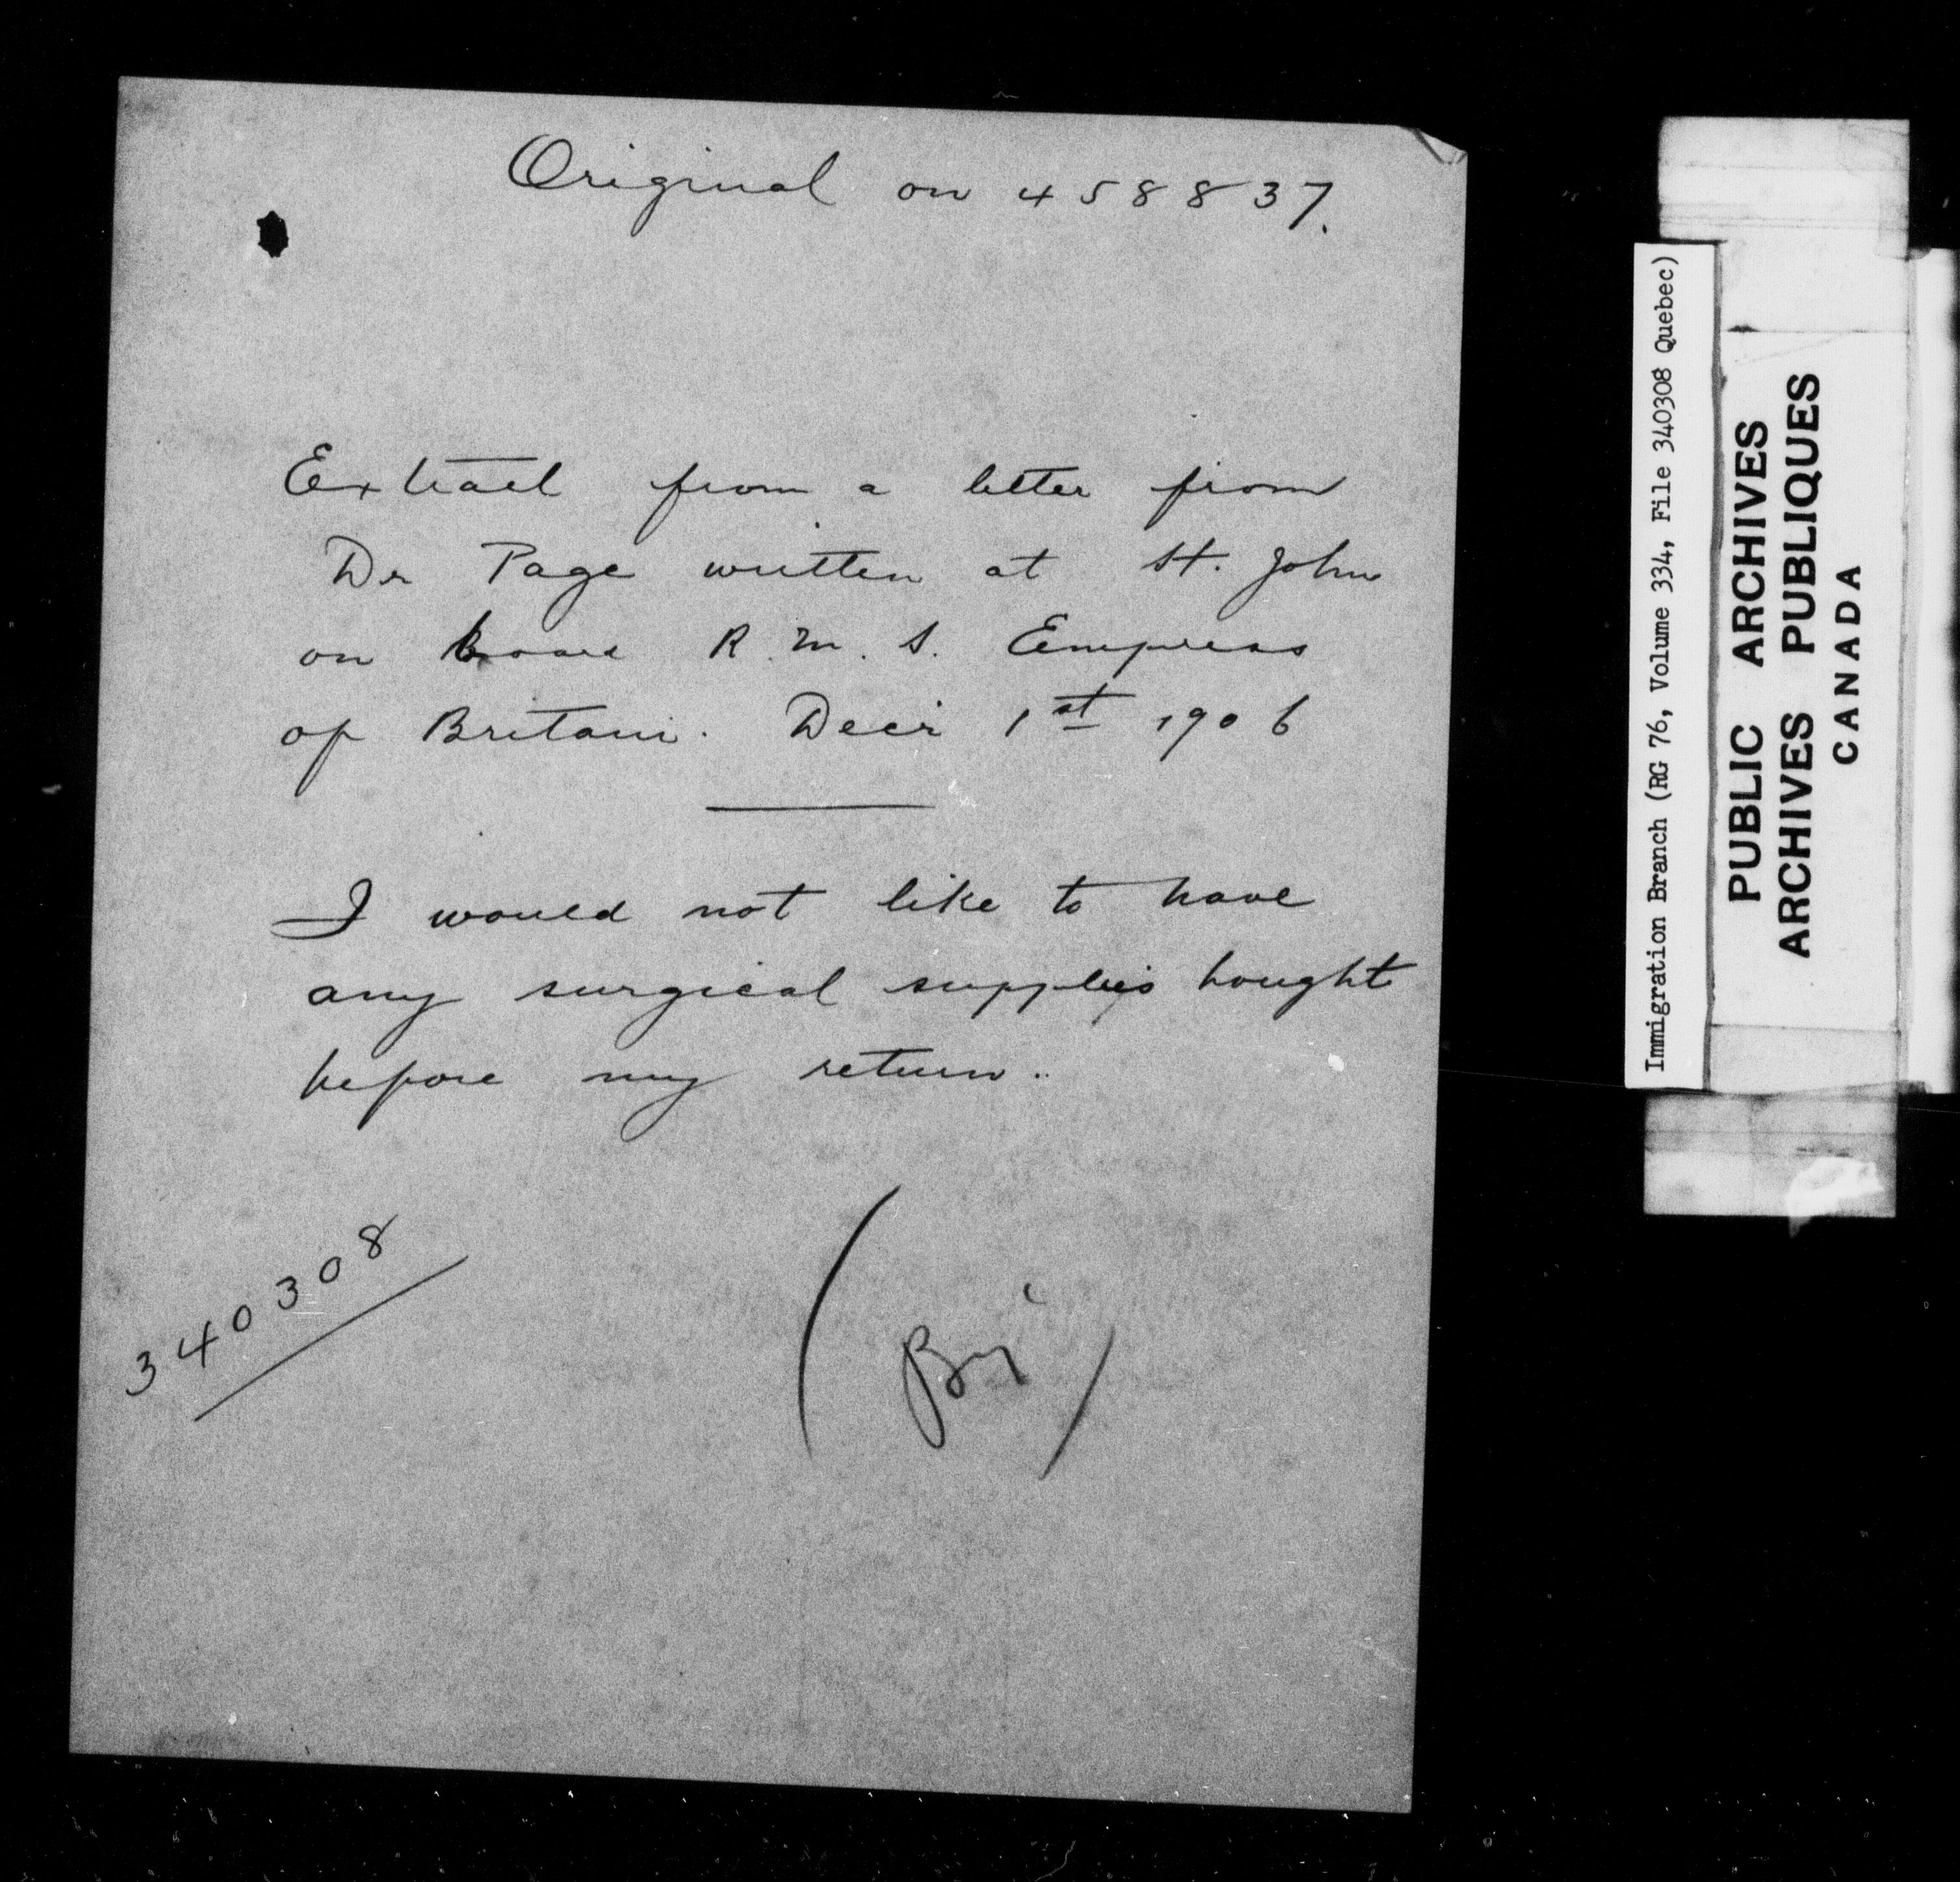 Original on 458837.
Extract from a letter from
Dr Page written at St. John
on board R. M. S. Empress
of Britain. Decr 1st 1906
I would not like to have
any surgical supplies bought
before my return.
340308
Immigration Branch (RG 76, Volume 334, File 340308 Quebec)
PUBLIC ARCHIVES
ARCHIVES PUBLIQUES
CANADA